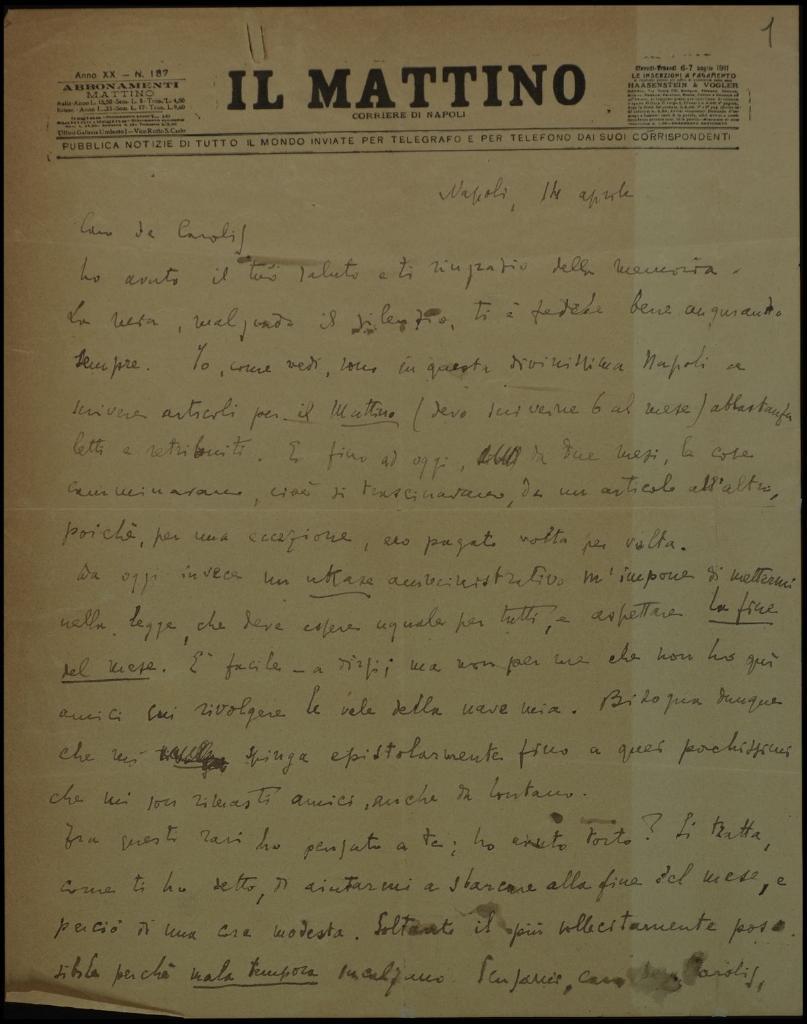 1
Anno XX — N. 187
ABBONAMENTI
MATTINO
IL MATTINO
CORRIERE DI NAPOLI
6-7 1911
LE INSERZIONI A PAGAMENTO
HAASENSTEIN & VOGLER
PUBBLICA NOTIZIE DI TUTTO IL MONDO INVIATE PER TELEGRAFO E PER TELEFONO DAI SUOI CORRISPONDENTI
Napoli, 14 aprile
Caro de Carolis
ho avuto il tuo saluto e ti ringrazio della memoria.
La mia, malgrado il silenzio, ti è fedele bene augurando
sempre. Io, come vedi, sono in questa divinissima Napoli a
scrivere articoli per il Mattino (devo scriverne 6 al mese) abbastanza
letti e retribuiti. E fino ad oggi, da due mesi, le cose
camminavano, cioè si trascinavano, da un articolo all'altro,
poichè, per una eccezione, ero pagato volta per volta.
Da oggi invece un ukase amministrativo m'impone di mettermi
nella legge, che deve essere uguale per tutti, e aspettare la fine
del mese. E' facile – a dirsi; ma non per me che non ho qui
amici cui rivolgere le vele della nave mia. Bisogna dunque
che mi spinga epistolarmente fino a quei pochissimi
che mi son rimasti amici, anche da lontano.
Fra questi rari ho pensato a te; ho avuto torto? Si tratta,
come ti ho detto, di aiutarmi a sbarcare alla fine del mese, e
perciò di una cosa modesta. Soltanto il più sollecitamente pos-
sibile perchè mala tempora incalzano. Scusami, caro Carolis,